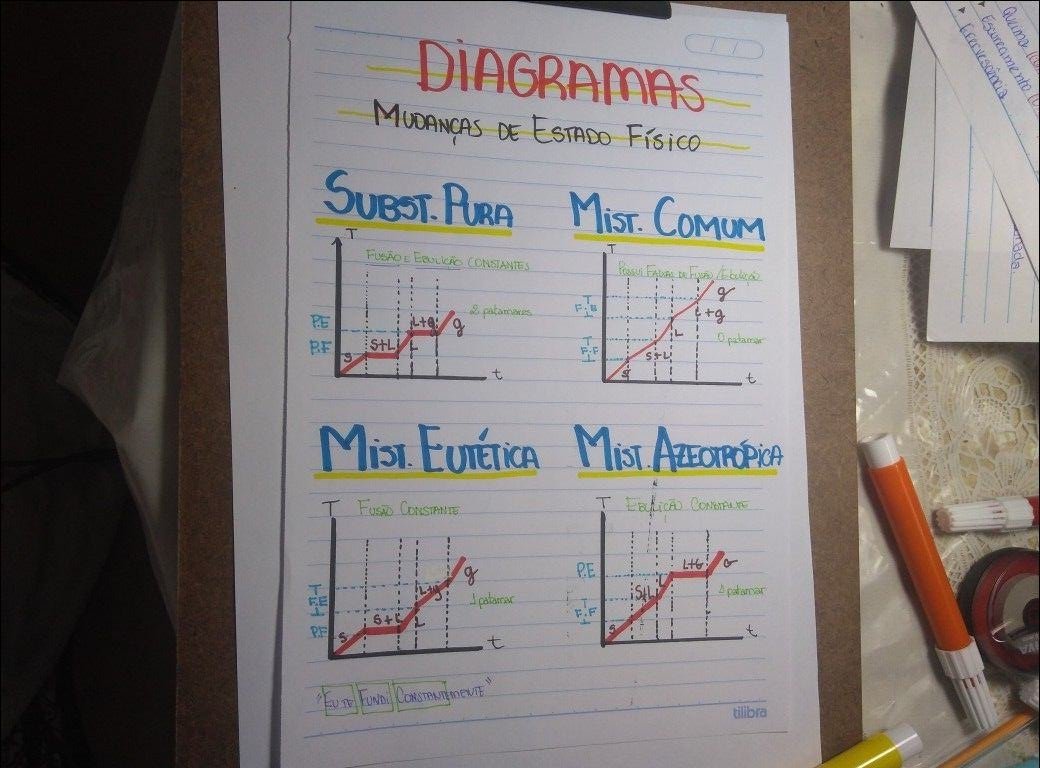 DIAGRAMAS
MUDANÇAS DE ESTADO FÍSICO
SUBST. PURA
T
FUSÃO E EBULIÇÃO CONSTANTES
2 patamares
P.E
P.F
S
S+L
L
L+g
g
t
MIST. COMUM
T
POSSUI FAIXAS DE FUSÃO/EBULIÇÃO
T
F.B
T
F.F
S
S+L
L
L+g
g
0 patamar
t
MIST. EUTÉTICA
T
FUSÃO CONSTANTE
T
F.E
P.F
S
S+L
L
L+g
g
1 patamar
t
MIST. AZEOTRÓPICA
T
EBULIÇÃO CONSTANTE
P.E
T
F.F
S
S+L
L
L+G
G
1 patamar
t
"EUTE FUNDI CONSTANTEMENTE"
tilibra
Queima
Esvaecimento
Efervescência